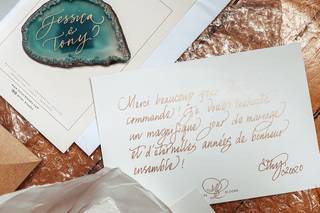 Jessica
&
Tony
Merci beaucoup pour
commande! Je vous souhaite
un magnifique jour de mariage
et d'éternelles années de bonheur
ensemble!
2020